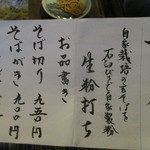 自家栽培の玄そばを
自家製粉
生粉打ち
お品書き
そば切り 九五〇円
そばがき 九〇〇円